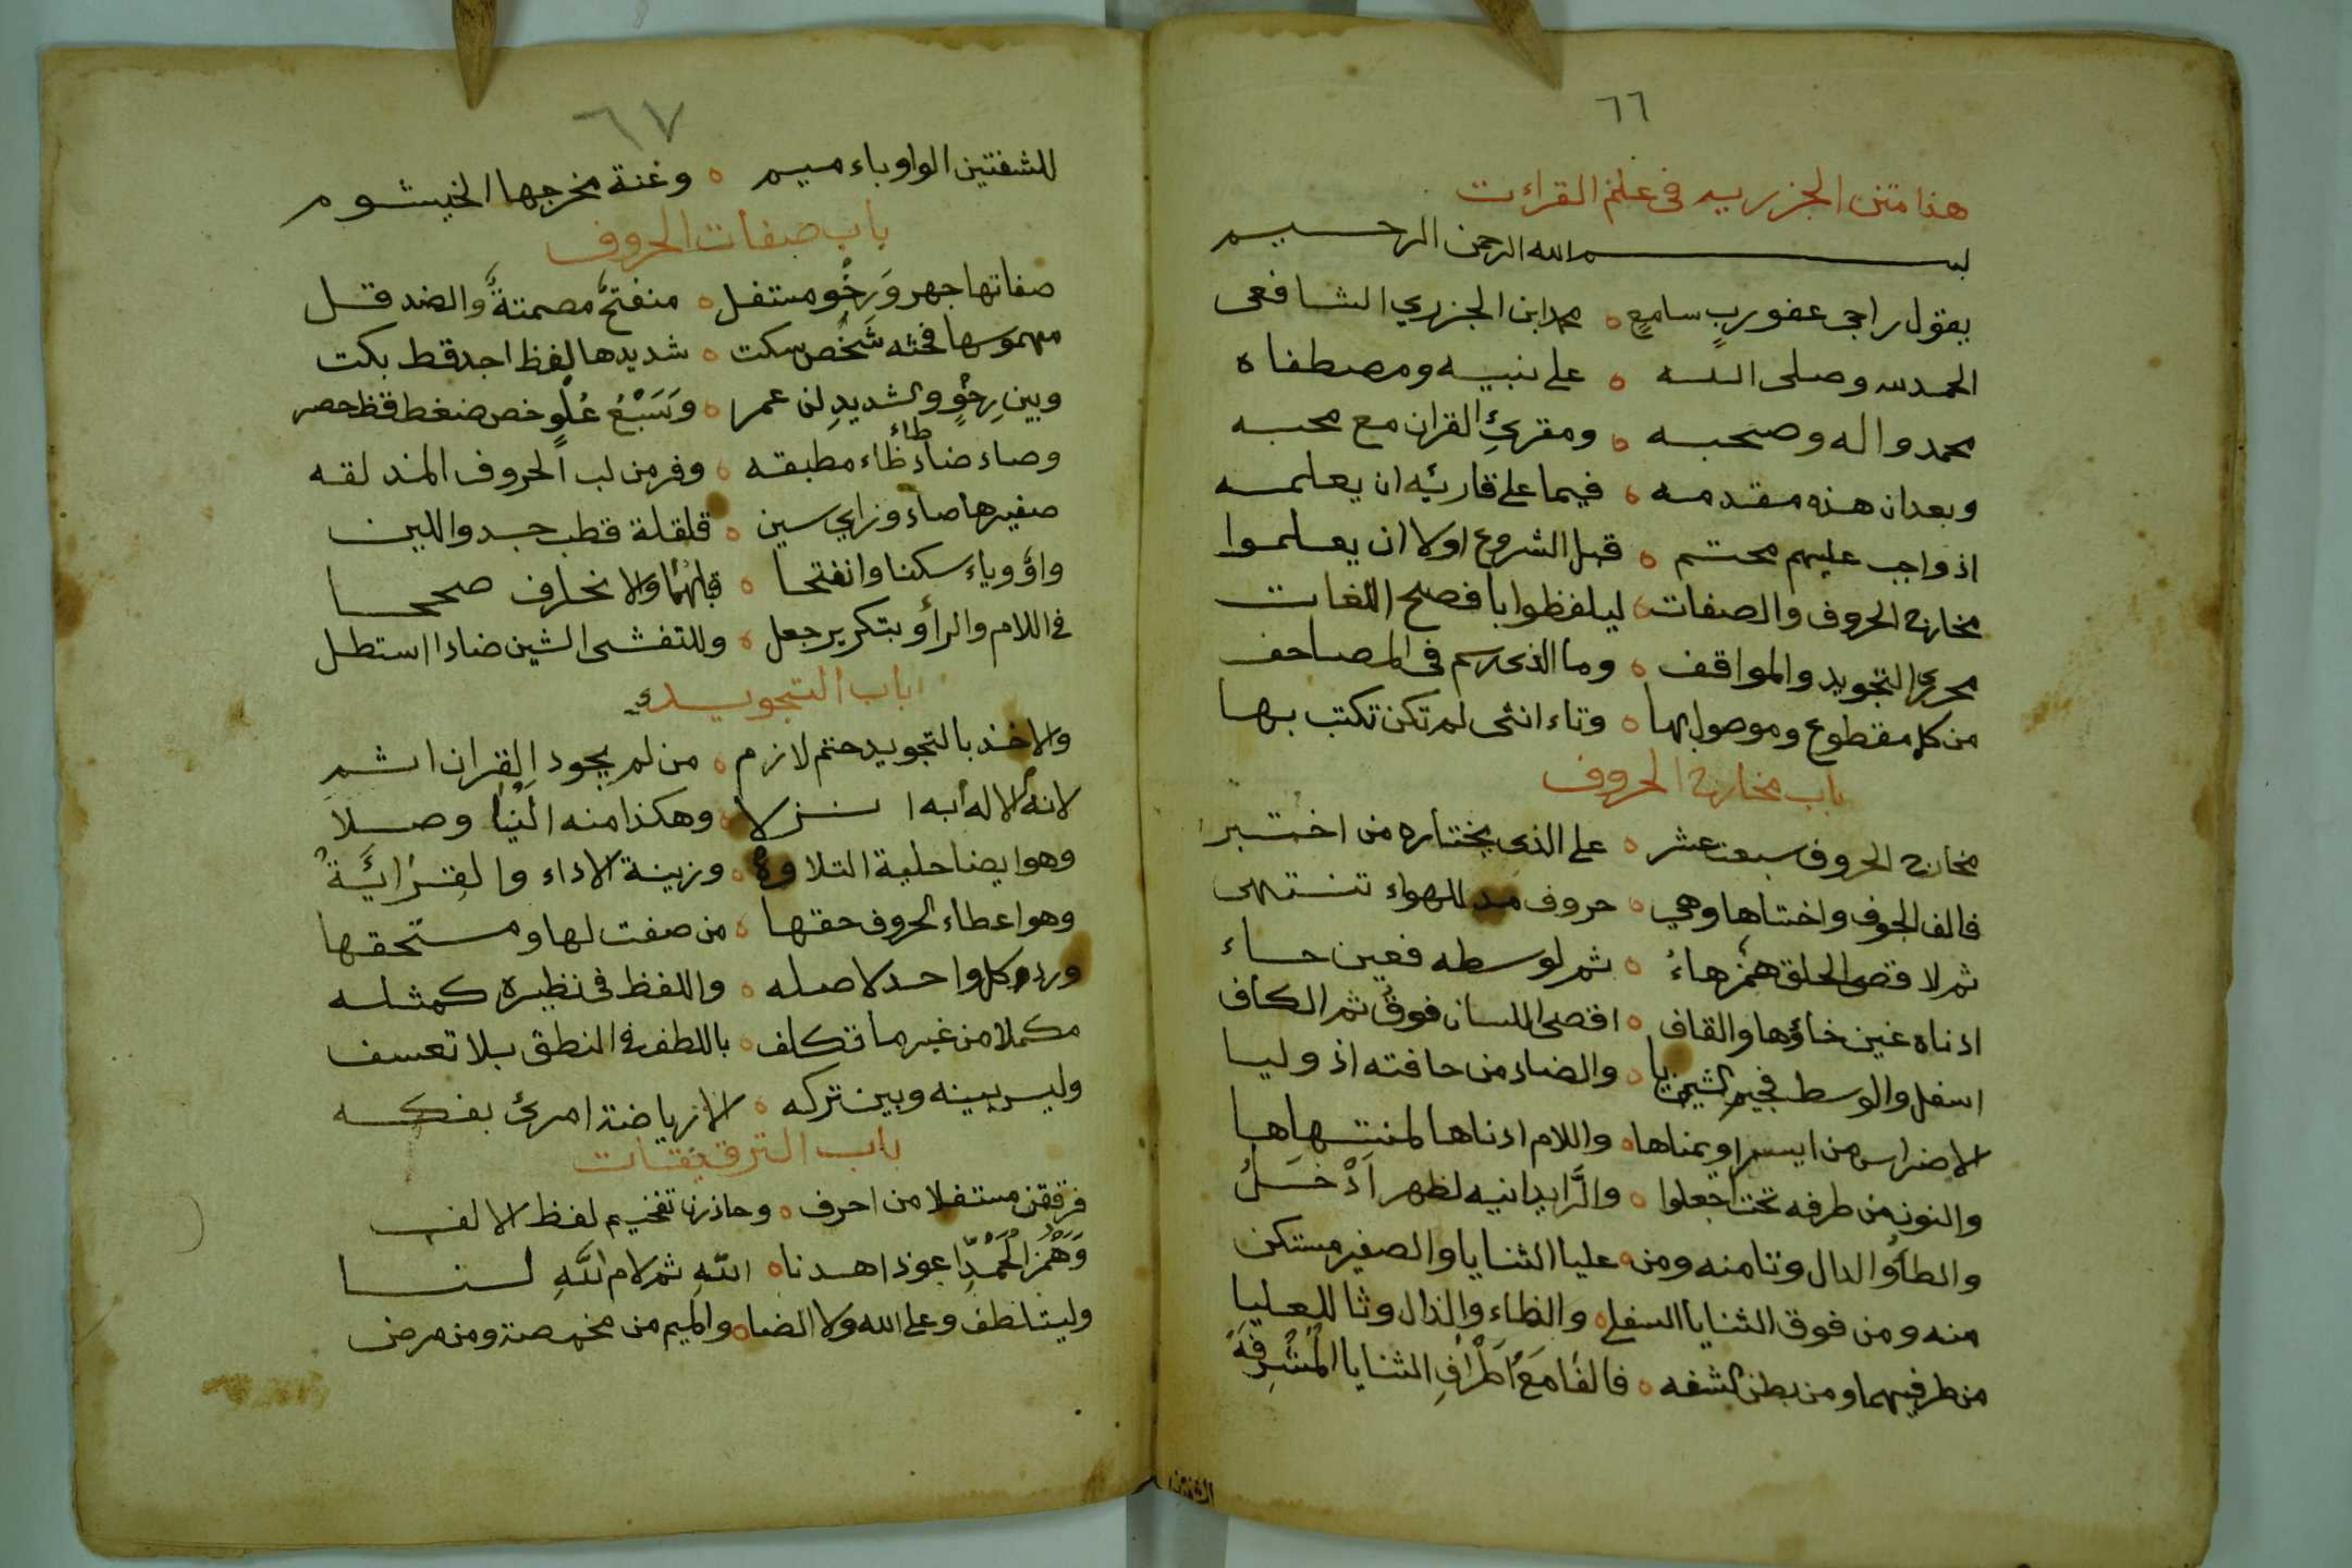 ٦٦
هذا متن الجزريه في علم القراءت
بسم الله الرحمن الرحيم
يقول راجى عفو ربٍ سامعٍ ه محمد ابن الجزري الشافعى
الحمد لله وصلى الله ه على نبيه ومصطفاه
محمد واله وصحبه ه ومقرئ القران مع محبه
وبعد ان هذه مقدمه ه فيما على قارئه ان يعلمه
اذ واجب عليهم محتم ه قبل الشروع اولا ان يعلموا
مخارج الحروف والصفات ه ليلفظوا بافصح اللغات
محرري التجويد والمواقف ه وما الذى رسم فى المصاحف
من كل مقطوع وموصول بها ه وتاء انثى لم تكن تكتب بها
باب مخارج الحروف
مخارج الحروف سبعة عشر ه على الذي يختاره من اختبر
فالف الجوف واختاها وهي ه حروف مد للهواء تنتهى
ثم لاقصى الحلق همز هاءُ ه ثم لوسطه فعين حاء
ادناه غين خاؤها والقاف ه اقصى اللسان فوق ثم الكاف
اسفل والوسط فجيم الشين يا ه والضاد من حافته اذ وليا
الاضراس من ايسر او يمناها ه واللام ادناها لمنتهاها
والنون من طرفه تحت اجعلوا ه والرَّا يدانيه لظهر اَدْخَلُ
والطاُ والدال وتا منه ومن ه عليا الثنايا والصفير مستكن
منه ومن فوق الثنايا السفلى ه والظاء والذال وثا للعليا
من طرفيهما ومن بطن الشفه ه فالفا مَعَ اَطْرَافِ الثنايا الْمُشْرِفَهْ
٦٧
للشفتين الواو باء ميم ه وغنة مخرجها الخيشوم
باب صفات الحروف
صفاتها جهر وَرَخْو مستفل ه منفتحٌ مصمتةٌ والضد قل
مهموسها فحثه شَخْص سكت ه شديدها لفظ اجد قط بكت
وبين رِخْوٍ والشديدِ لن عمر ه وَسَبْعُ عُلْوٍ خص ضغط قظ حصر
وصاد ضاد طاء ظاء مطبقه ه وفر من لب الحروف المذلقه
صفيرها صاد وزاي سين ه قلقلة قطب جد واللين
واوٌ وياء سكنا وانفتحا ه قبلهما والانحراف صححا
في اللام والرا وبتكرير جعل ه وللتفشى الشين ضادا استطل
باب التجويد
والاخذ بالتجويد حتم لازم ه من لم يجود القران اثم
لانه الاله به انزلا ه وهكذا منه الَيْنا وصلا
وهو ايضا حلية التلاوة ه وزينة الاداء والقِرَائَةْ
وهو اعطاء الحروف حقها ه من صفت لها ومستحقها
ورد كل واحد لاصله ه واللفظ فى نظيره كمثله
مكملا من غير ما تكلف ه باللطف في النطق بلا تعسف
وليس بينه وبين تركه ه الا رياضة امرئ بفكه
باب الترقيقات
فرققن مستفلا من احرف ه وحاذرن تفخيم لفظ الالف
وَهَمْزَ اَلْحَمْدِ اعوذ اهدنا ه اللهِ ثم لام للّهِ لنا
وليتلطف وعلى الله ولا الضا ه والميم من مخمصة ومن مرض